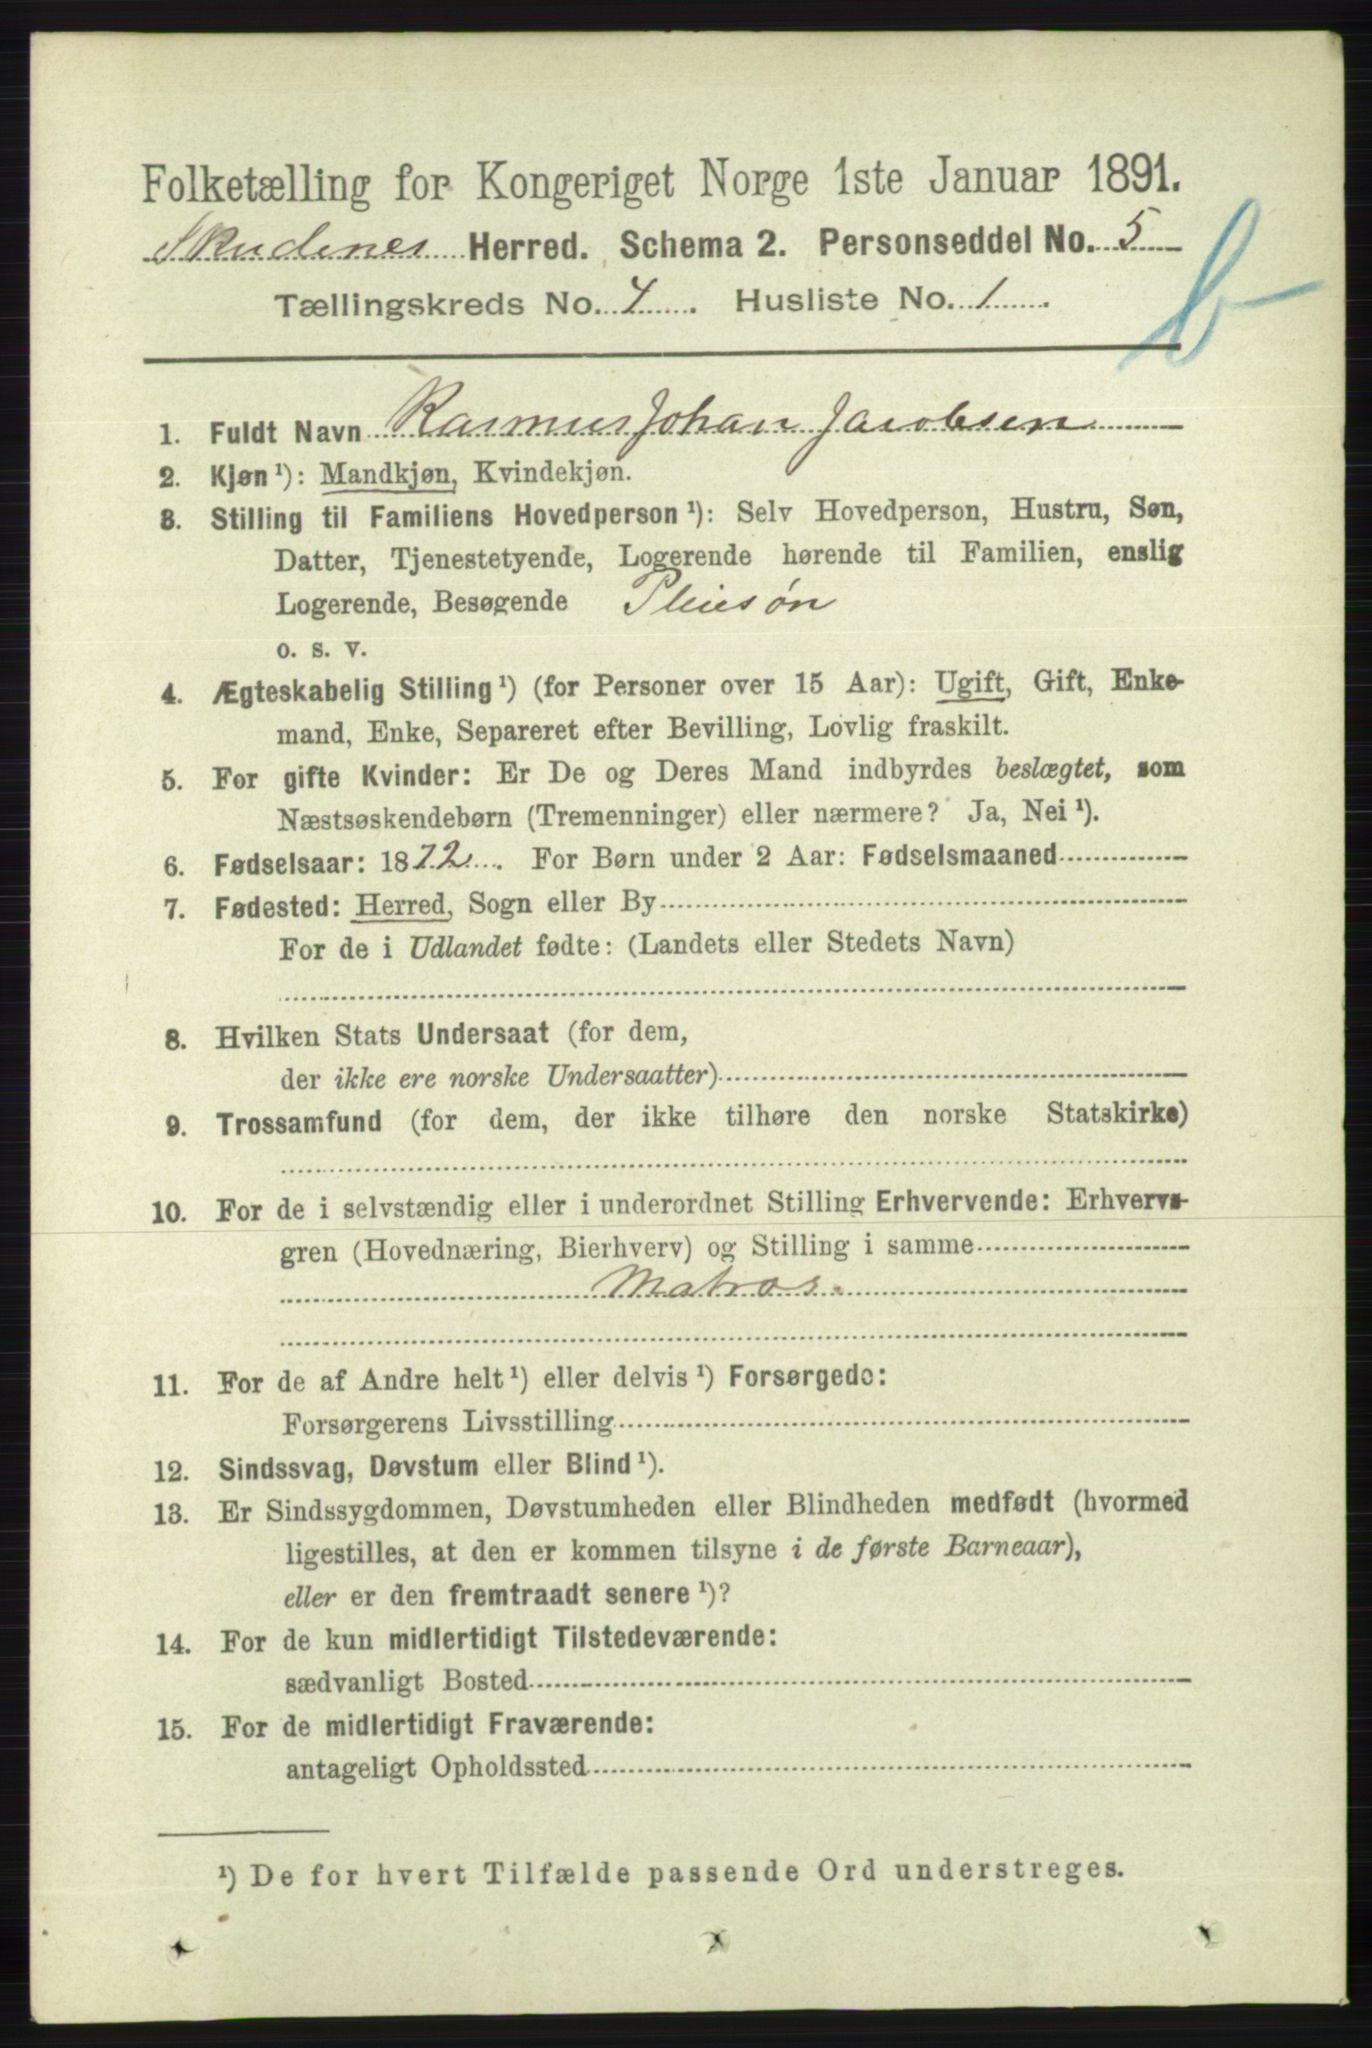 Folketælling for Kongeriget Norge 1ste Januar 1891.
Skudenes Herred. Schema 2. Personseddel No. 5
Tællingskreds No. 4. Husliste No. 1.
b
1. Fuldt Navn Rasmus Johan Jacobsen
2. Kjøn¹): Mandkjøn, Kvindekjøn.
3. Stilling til Familiens Hovedperson¹): Selv Hovedperson, Hustru, Søn,
Datter, Tjenestetyende, Logerende hørende til Familien, enslig
Logerende, Besøgende Pleiesøn
o. s. v.
4. Ægteskabelig Stilling¹) (for Personer over 15 Aar): Ugift, Gift, Enke-
mand, Enke, Separeret efter Bevilling, Lovlig fraskilt.
5. For gifte Kvinder: Er De og Deres Mand indbyrdes beslægtet, som
Næstsøskendebørn (Tremenninger) eller nærmere? Ja, Nei¹).
6. Fødselsaar: 1872. For Børn under 2 Aar: Fødselsmaaned
7. Fødested: Herred, Sogn eller By
For de i Udlandet fødte: (Landets eller Stedets Navn)
8. Hvilken Stats Undersaat (for dem,
der ikke ere norske Undersaatter)
9. Trossamfund (for dem, der ikke tilhøre den norske Statskirke)
10. For de i selvstændig eller i underordnet Stilling Erhvervende: Erhvervs-
gren (Hovednæring, Bierhverv) og Stilling i samme
Matros.
11. For de af Andre helt¹) eller delvis¹) Forsørgede:
Forsørgerens Livsstilling
12. Sindssvag, Døvstum eller Blind¹).
13. Er Sindssygdommen, Døvstumheden eller Blindheden medfødt (hvormed
ligestilles, at den er kommen tilsyne i de første Barneaar),
eller er den fremtraadt senere¹)?
14. For de kun midlertidigt Tilstedeværende:
sædvanligt Bosted
15. For de midlertidigt Fraværende:
antageligt Opholdssted
¹) De for hvert Tilfælde passende Ord understreges.